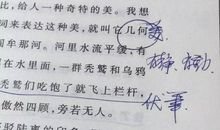 比，给人一种奇特的美。我想
词来表达这种美，就叫它几何
阎牟那河。河里水流平缓，有
在水里面，一群秃鹫和乌鸦
秃鹫们吃饱了就飞上栏杆，
傲然四顾，旁若无人。
伏笔